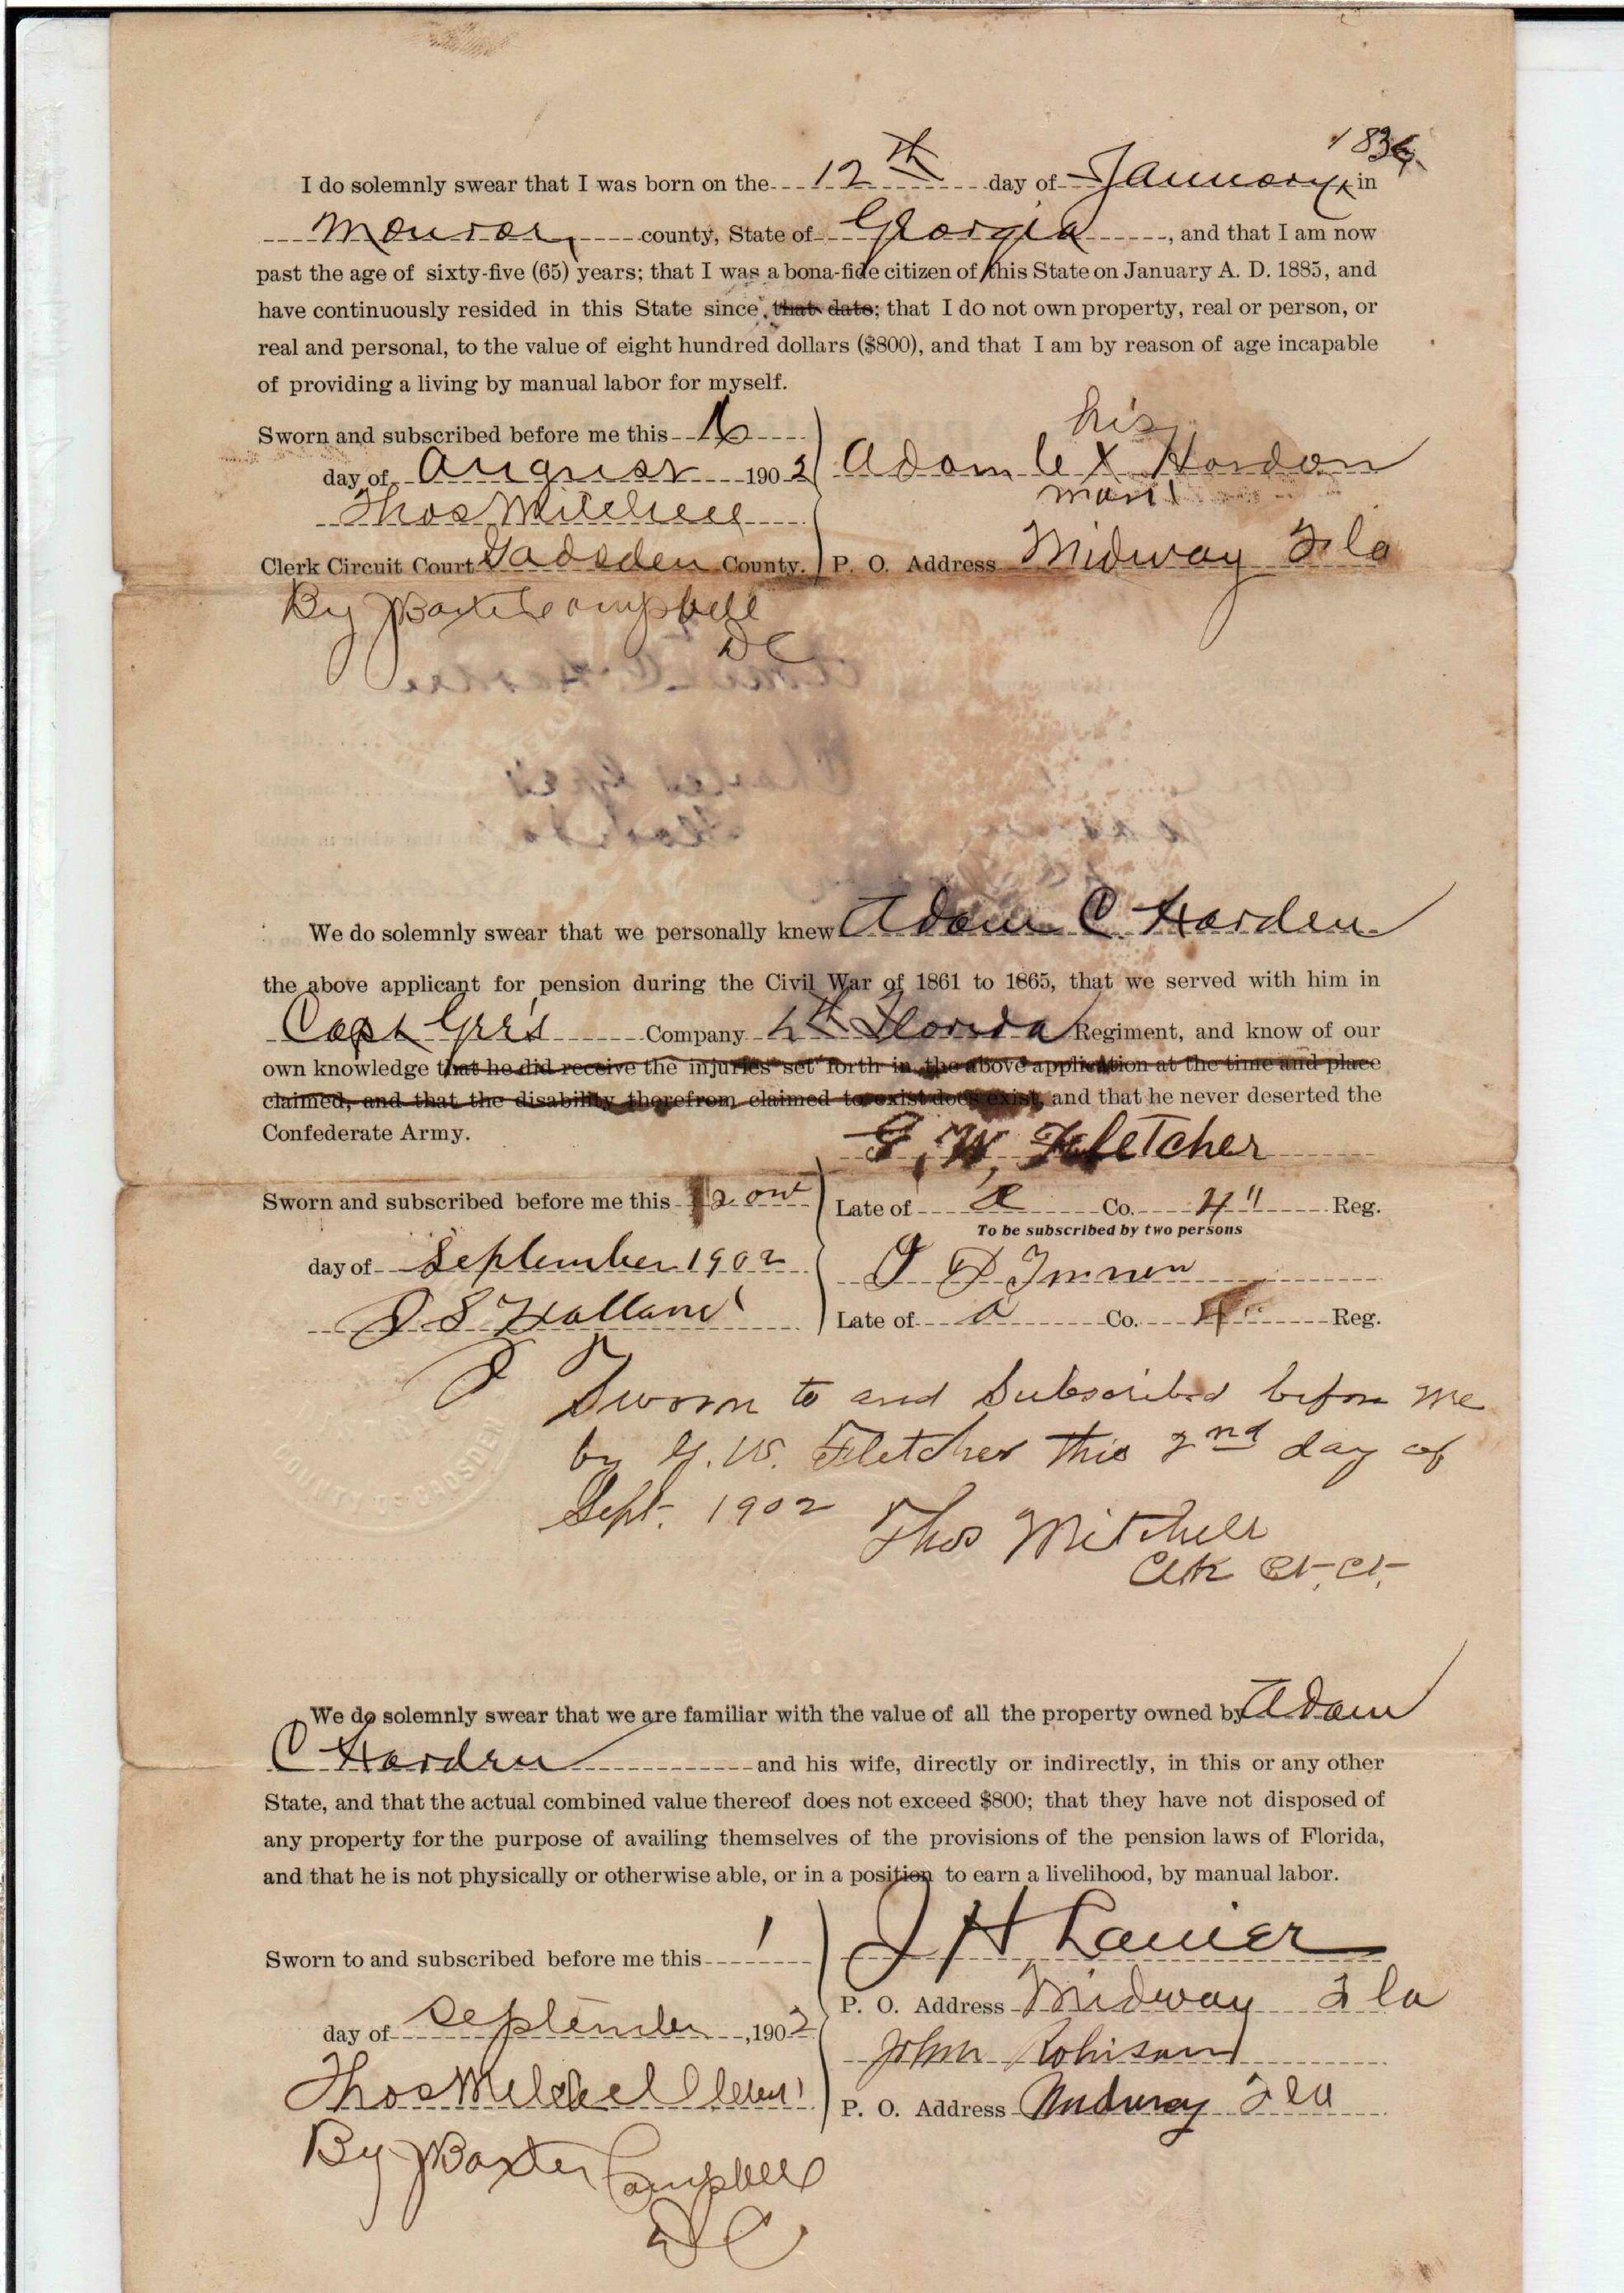 1836
I do solemnly swear that I was born on the 12th day of January, in
Monroe, county, State of Georgia, and that I am now
past the age of sixty-five (65) years; that I was a bona-fide citizen of this State on January A. D. 1885, and
have continuously resided in this State since that date; that I do not own property, real or person, or
real and personal, to the value of eight hundred dollars ($800), and that I am by reason of age incapable
of providing a living by manual labor for myself.
his
Sworn and subscribed before me this
day of August 1902 Adam C X Harden
mark
Thos Mitchell
Clerk Circuit Court Gadsden County. P. O. Address Midway Fla
By J Baxter Campbell
DC
We do solemnly swear that we personally knew Adam C Harden
the above applicant for pension during the Civil War of 1861 to 1865, that we served with him in
Capt Company 4th Florida Regiment, and know of our
own knowledge that he did receive the injuries set forth in the above application at the time and place
claimed, and that the disability therefrom claimed to exist does exist, and that he never deserted the
Confederate Army.
G. W. Fletcher
Sworn and subscribed before me this Late of Co. 4" Reg.
To be subscribed by two persons
day of September 1902
J S Holland Late of Co. 4" Reg.
Sworn to and Subscribed before me
by G. W. Fletcher this 2nd day of
Sept. 1902 Thos Mitchell
Clk Ct. Ct.
COUNTY OF GADSDEN
We do solemnly swear that we are familiar with the value of all the property owned by Adam
C Harden and his wife, directly or indirectly, in this or any other
State, and that the actual combined value thereof does not exceed $800; that they have not disposed of
any property for the purpose of availing themselves of the provisions of the pension laws of Florida,
and that he is not physically or otherwise able, or in a position to earn a livelihood, by manual labor.
Sworn to and subscribed before me this 1 J H Lanier
P. O. Address Midway Fla
day of September, 1902
John Robison
Thos Mitchell Clerk P. O. Address Midway Fla
By J Baxter Campbell
DC